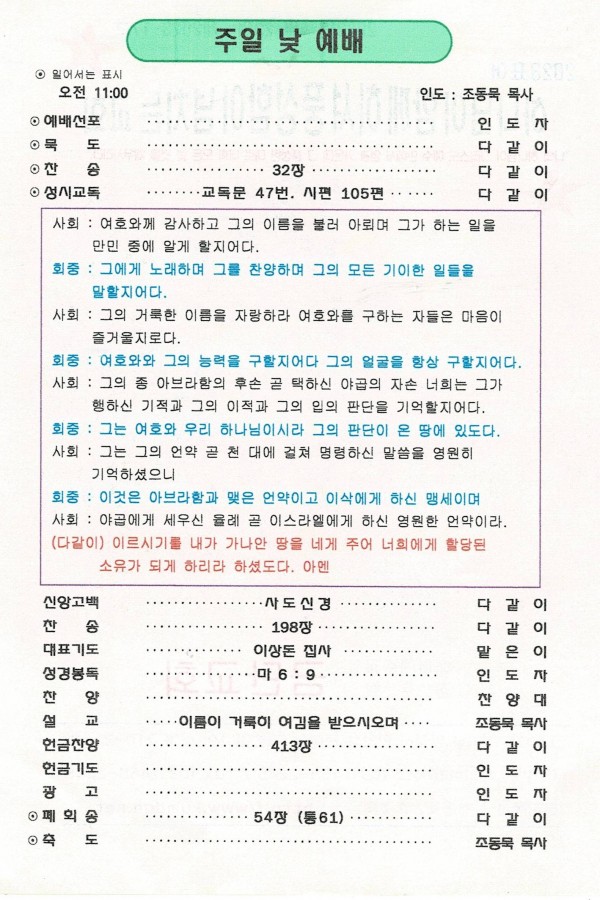 주일 낮 예배
⊙ 일어서는 표시
오전 11:00 인도 : 조동묵 목사
⊙ 예배선포 ································ 인 도 자
⊙ 묵 도 ································ 다 같 이
⊙ 찬 송 ················ 32장 ················ 다 같 이
⊙ 성시교독 ········교독문 47번. 시편 105편 ······ 다 같 이
사회 : 여호와께 감사하고 그의 이름을 불러 아뢰며 그가 하는 일을
만민 중에 알게 할지어다.
회중 : 그에게 노래하며 그를 찬양하며 그의 모든 기이한 일들을
말할지어다.
사회 : 그의 거룩한 이름을 자랑하라 여호와를 구하는 자들은 마음이
즐거울지로다.
회중 : 여호와와 그의 능력을 구할지어다 그의 얼굴을 항상 구할지어다.
사회 : 그의 종 아브라함의 후손 곧 택하신 야곱의 자손 너희는 그가
행하신 기적과 그의 이적과 그의 입의 판단을 기억할지어다.
회중 : 그는 여호와 우리 하나님이시라 그의 판단이 온 땅에 있도다.
사회 : 그는 그의 언약 곧 천 대에 걸쳐 명령하신 말씀을 영원히
기억하셨으니
회중 : 이것은 아브라함과 맺은 언약이고 이삭에게 하신 맹세이며
사회 : 야곱에게 세우신 율례 곧 이스라엘에게 하신 영원한 언약이라.
(다같이) 이르시기를 내가 가나안 땅을 네게 주어 너희에게 할당된
소유가 되게 하리라 하셨도다. 아멘
신앙고백 ················사도신경 ············· 다 같 이
찬 송 ················ 198장················ 다 같 이
대표기도 ············· 이상돈 집사 ············ 맡 은 이
성경봉독 ···············마 6 : 9················ 인 도 자
찬 양 ································ 찬 양 대
설 교 ·····이름이 거룩히 여김을 받으시오며 ···· 조동묵 목사
헌금찬양 ················ 413장 ················ 다 같 이
헌금기도 ································ 인 도 자
광 고 ································ 인 도 자
⊙ 폐 회 송 ·············· 54장 (통61)············ 다 같 이
⊙ 축 도 ································ 조동묵 목사